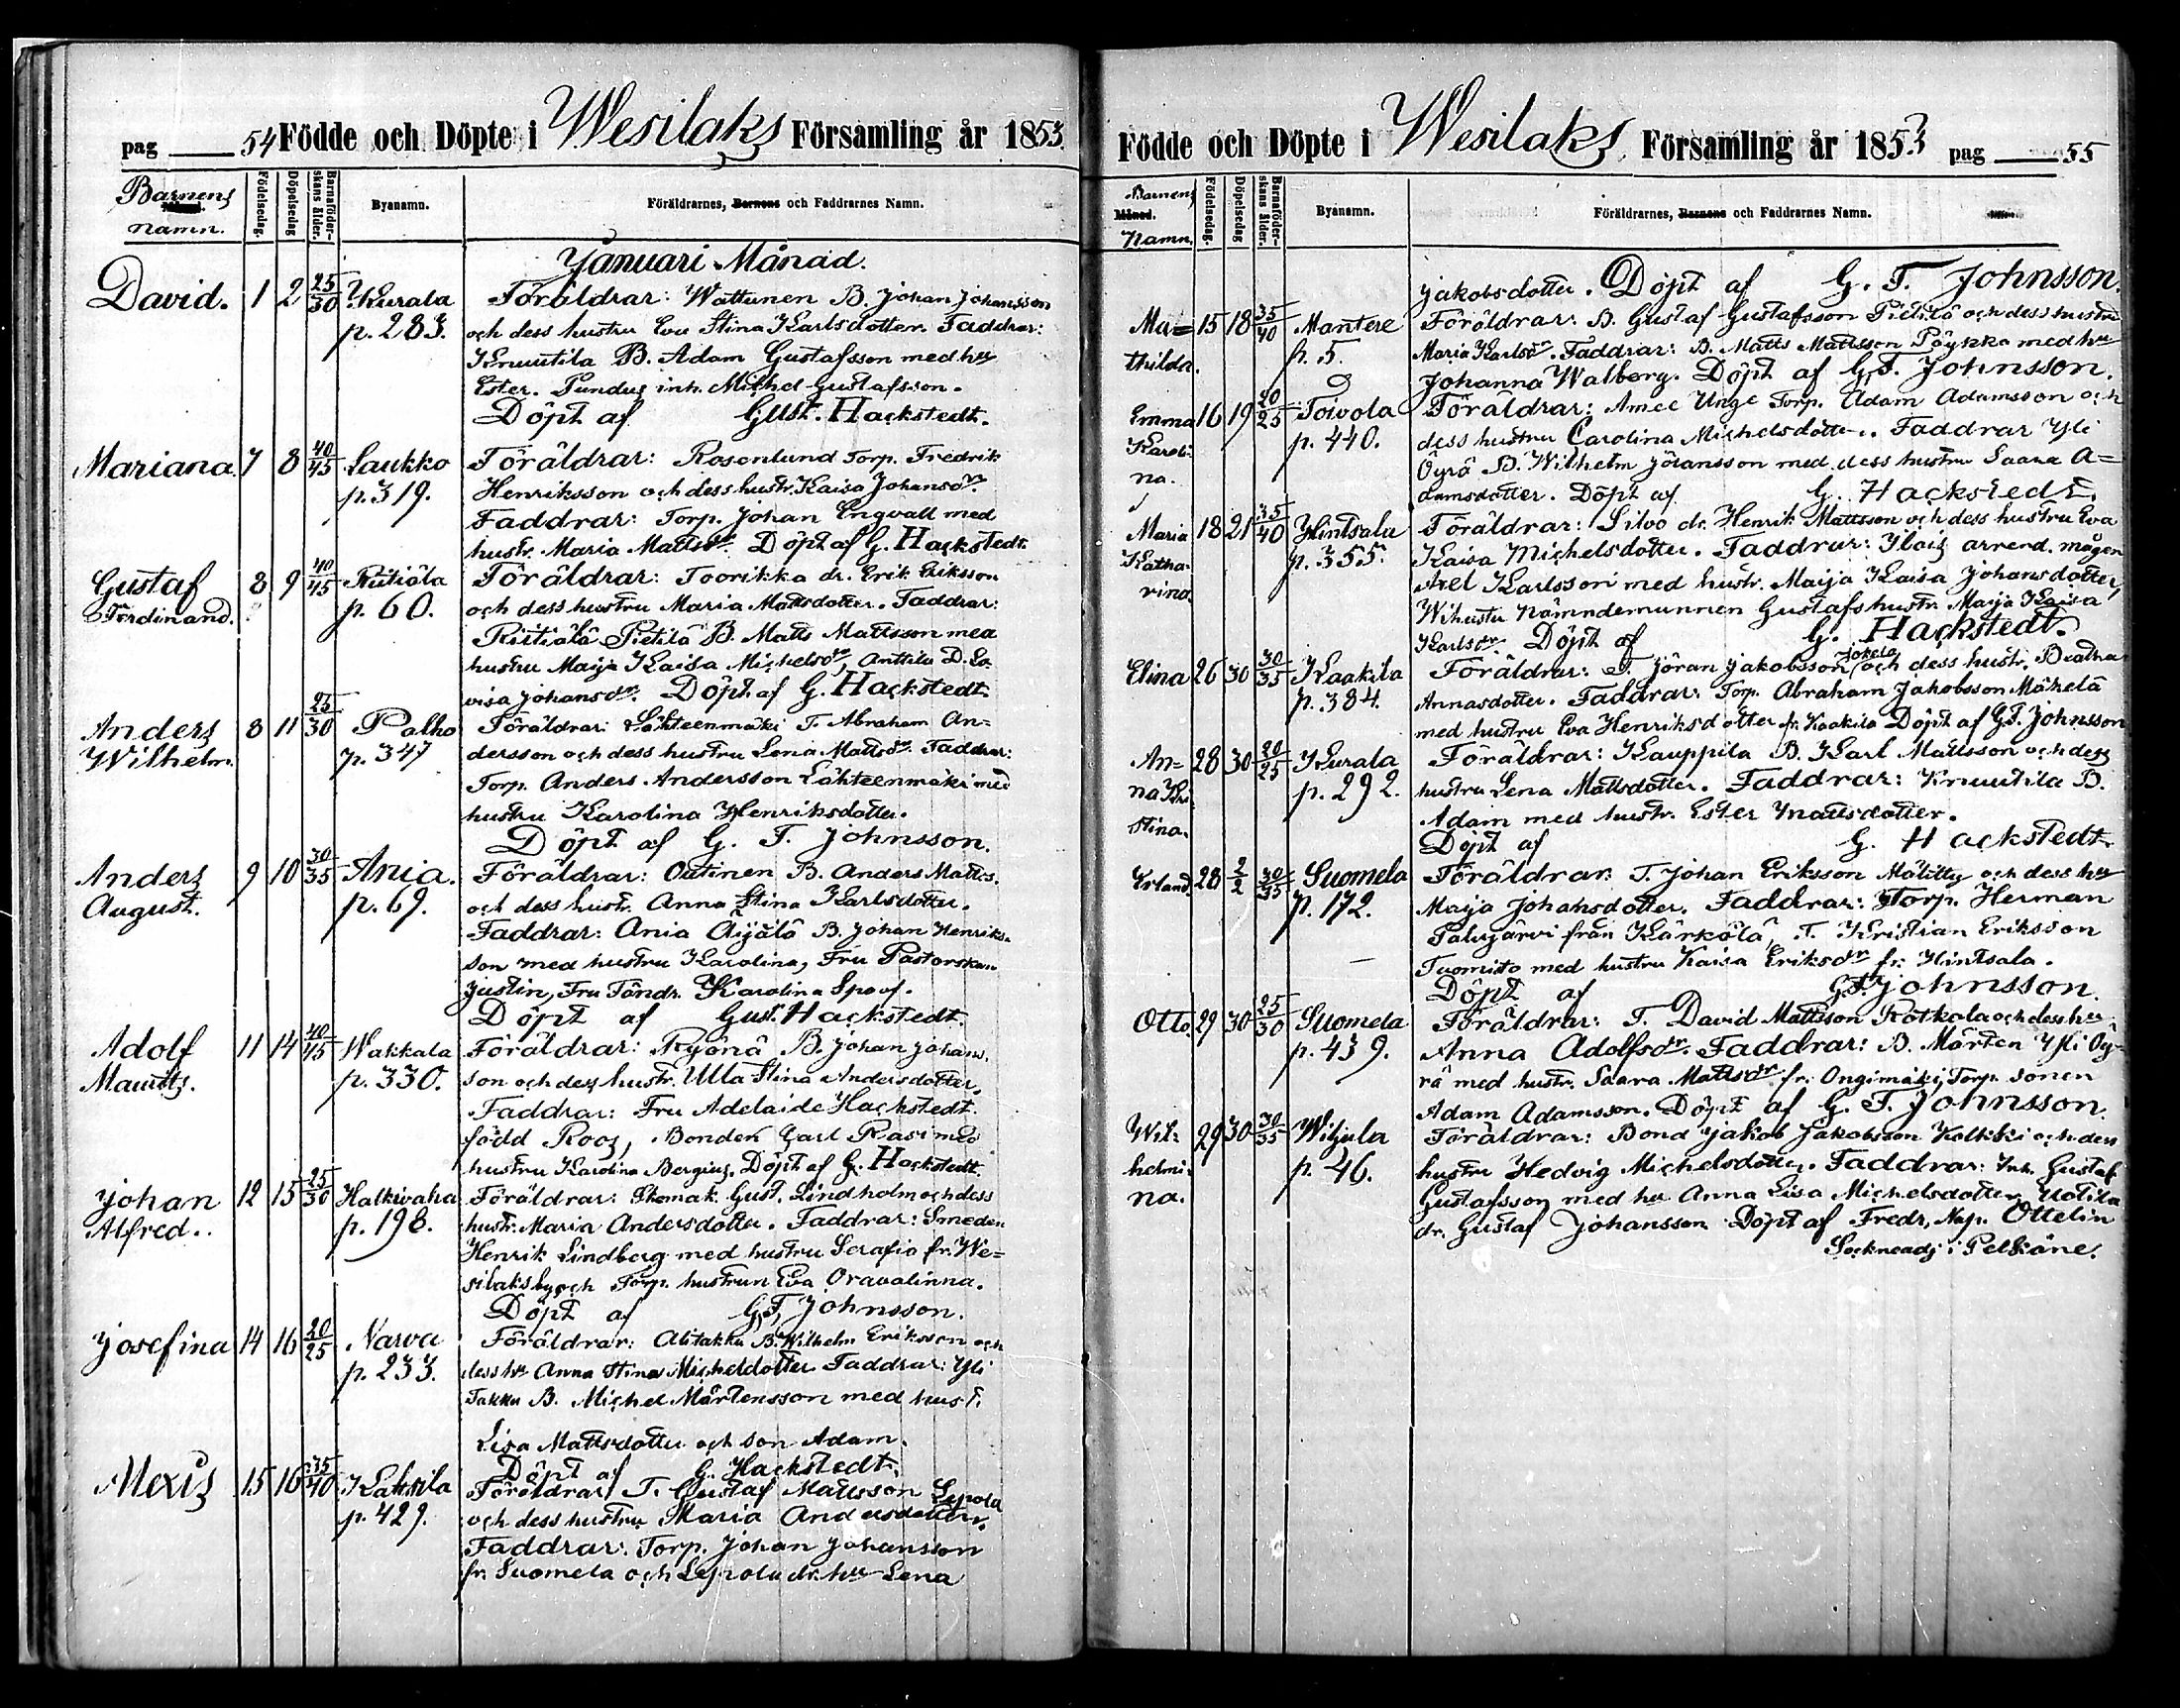 pag 54 Födde och Döpte i Wesilaks Församling år 1853.
Barnens namn. Födelsedag. Döpelsedag Barnaföderskans ålder. Byanamn. Föräldrarnes, Barnens och Faddrarnes Namn.
Januari Månad.
David. 1 2 25/30 Kurala Föräldrar: Wattunen B. Johan Johansson
p. 283. och dess hustru Eva Stina Karlsdotter. Faddrar:
Knuutila B. Adam Gustafsson med hu
Ester. Pundus inh. Michel Gustafsson.
Döpt af Gust. Hackstedt.
Mariana. 7 8 40/45 Laukko Föräldrar: Rosenlund Torp. Fredrik
p. 319. Henriksson och dess hustr. Kaisa Johansdr.
Faddrar: Torp. Johan Engvall med
hustr. Maria Mattsdr. Döpt af G. Hackstedt.
Gustaf 8 9 40/45 Riitiälä Föräldrar: Toorikka dr. Erik Eriksson
Ferdinand. p. 60. och dess hustru Maria Mattsdotter. Faddrar:
Riitiälä Pietilä B. Matts Mattsson med
hustru Maija Kaisa Michelsdr, Anttila D. Lo
visa Johansdr. Döpt af G. Hackstedt.
Anders 8 11 25/30 Palho Föräldrar: Lähteenmäki T. Abraham An=
Wilhelm. p. 347 dersson och dess hustru Lena Mattsdr. Faddrar:
Torp. Anders Andersson Lähteenmäki med
hustru Karolina Henriksdotter.
Döpt af G. T. Johnsson.
Anders 9 10 30/35 Ania. Föräldrar: Outinen B. Anders Matts.
August. p. 69. och dess hustr. Anna Stina Karlsdotter.
Faddrar: Ania Äijälä B. Johan Henriks=
son med hustru Karolina, Fru Pastorskan
Justin, Fru Tändr. Karolina Spoof.
Döpt af Gust. Hackstedt.
Adolf 11 14 40/45 Wakkala Föräldrar: Ryönä B. Johan Johans.
Mauritz. p. 330. son och dess hustr. Ulla Stina Andersdotter,
Faddrar: Fru Adelaide Hackstedt.
född Roos, Bonden Carl Rasi med
hustru Karolina Bergius. Döpt af G. Hackstedt.
Johan 12 15 25/30 Halkivaha Föräldrar: Skomak. Gust. Lindholm och dess
Alfred.. p. 198. hustr. Maria Andersdotter. Faddrar: Smeden
Henrik Lindberg med hustru Serafia fr. We=
silaks by och Torp. hustrun Eva Oravalinna.
Döpt af G. T. Johnsson.
Josefina 14 16 20/25 Narva Föräldrar: Alitakku B. Wilhelm Eriksson och
p. 233. dess hu Anna Stina Micheldotter Faddrar: Yli
Takku B. Michel Mårtensson med hust.
Lisa Mattsdotter och son Adam.
Döpt af G. Hackstedt.
Alexis 15 16 35/40 Kaksila Föräldrar T. Gustaf Mattsson Lepola
p. 429. och dess hustru Maria Andersdotter.
Faddrar: Torp. Johan Johansson
fr. Suomela och Lepola dr. hu Lena
Födde och Döpte i Wesilaks Församling år 1853 pag 55
Barnens Månad. Namn. Födelsedag. Döpelsedag Barnaföderskans ålder. Byanamn. Föräldrarnes, Barnens och Faddrarnes Namn.
Jakobsdotter. Döpt af G. T. Johnsson.
Ma= 15 18 35/40 Mantere Föräldrar: B. Gustaf Gustafsson Pietilä och dess hustru
thilda. p. 5. Maria Karlsdr. Faddrar: B. Matts Mattsson Pöykkö med hu
Johanna Walborg. Döpt af G. T. Johnsson.
Emma 16 19 20/25 Toivola Föräldrar: Amee Unge Torp. Adam Adamsson och
Karoli= p. 440. dess hustru Carolina Michelsdotter. Faddrar Yli
na. Öyrä B. Wilhelm Jöransson med dess hustru Saara A=
damsdotter. Döpt af G. Hackstedt.
Maria 18 21 35/40 Hintsala Föräldrar: Silvo dr. Henrik Mattsson och dess hustru Eva
Katha= p. 355. Kaisa Michelsdotter. Faddrar: Ylais arrend. mågen
rina. Axel Karlsson med hustr. Maija Kaisa Johansdotter,
Wihustu Nämndemannen Gustafs hustr. Maija Kaisa
Karlsdr. Döpt af G. Hackstedt.
Elina 26 30 30/35 Kaakila Föräldrar: T. Jöran Jakobsson Jokela och dess hustr. Beatha
p. 384. Annasdotter. Faddrar: Torp. Abraham Jakobsson Mäkelä
med hustru Eva Henriksdotter fr. Kaakila Döpt af G. T. Johnsson
An= 28 30 20/25 Kurala Föräldrar: Kauppila B. Karl Mattsson och dess
na Kri p. 292. hustru Lena Mattsdotter. Faddrar: Knuutila B.
stina. Adam med hustr. Ester Mattsdotter.
Döpt af G. Hackstedt.
Erland 28 2/2 30/35 Suomela Föräldrar: T. Johan Eriksson Mälitty och dess hu
p. 172. Maija Johansdotter. Faddrar: Torp. Herman
Palujärvi från Kärkölä, T. Kristian Eriksson
Tuomisto med hustru Kaisa Eriksdr fr. Hintsala.
Döpt af G. T. Johnsson.
Otto. 29 30 25/30 Suomela Föräldrar: T. David Mattsson Kotkola och dess hu
p. 439. Anna Adolfsdr. Faddrar: B. Mårten Yli Öy=
rä med hustr. Saara Mattsdr fr. Ongimäki, Torp. sonen
Adam Adamsson. Döpt af G. T. Johnsson.
Wil= 29 30 30/35 Wiljula Föräldrar: Bond Jakob Jakobsson Kolkki och dess
helmi= p. 46. hustru Hedvig Michelsdotter. Faddrar: Inh. Gustaf
na. Gustafsson med hu Anna Lisa Michelsdotter Uotila
dr. Gustaf Johansson Döpt af Fredr. Nap. Ottelin
Sockneadj i Pelkäne.